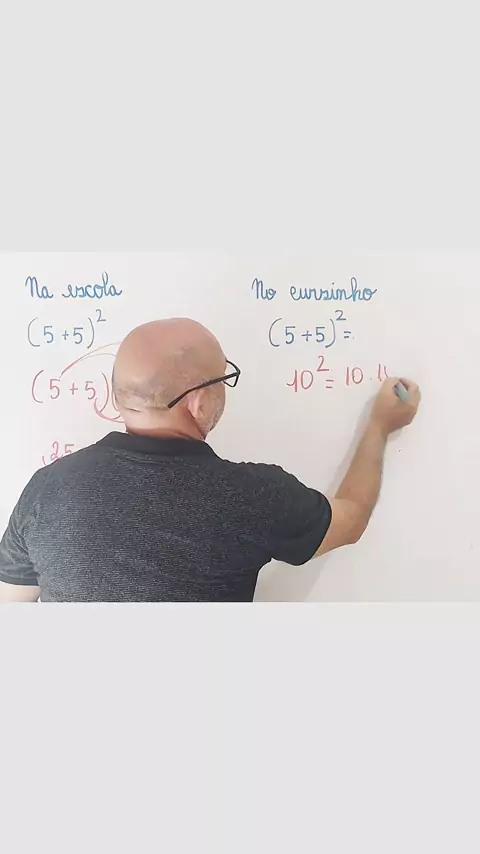 Na escola
(5+5)²
(5+5)(
25
No cursinho
(5+5)²=
10² = 10 . 1